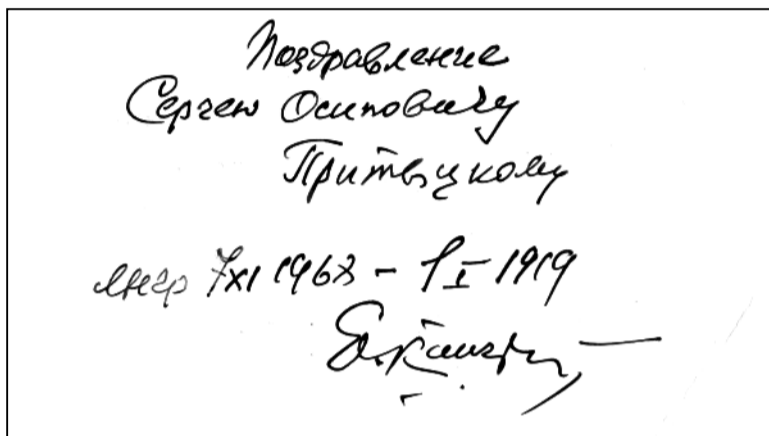 Поздравление
Сергею Осиповичу
Притыцкому
7 XI 1968 – 1 I 1919